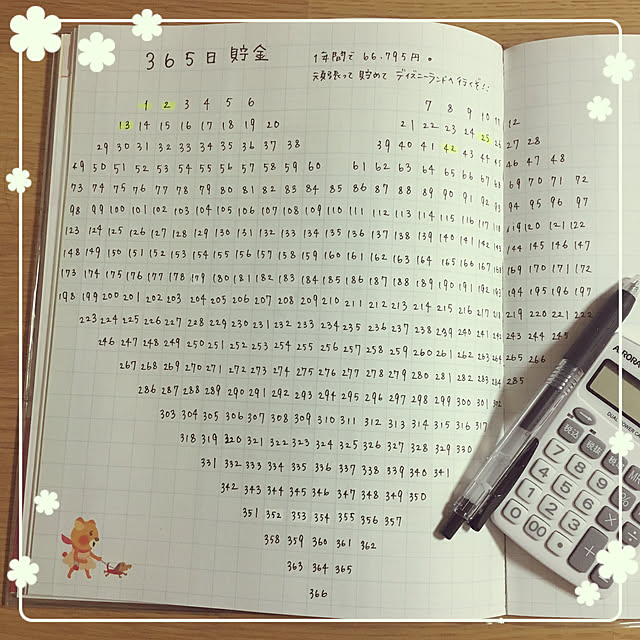 365日貯金
1年間で 66,795円。
頑張って 貯めて ディズニーランドへ行くぞ!!
1 2 3 4 5 6 7 8 9 10 11 12
13 14 15 16 17 18 19 20 21 22 23 24 25 26 27 28
29 30 31 32 33 34 35 36 37 38 39 40 41 42 43 44 45 46 47 48
49 50 51 52 53 54 55 56 57 58 59 60 61 62 63 64 65 66 67 68 69 70 71 72
73 74 75 76 77 78 79 80 81 82 83 84 85 86 87 88 89 90 91 92 93 94 95 96 97
98 99 100 101 102 103 104 105 106 107 108 109 110 111 112 113 114 115 116 117 118 119 120 121 122
123 124 125 126 127 128 129 130 131 132 133 134 135 136 137 138 139 140 141 142 143 144 145 146 147
148 149 150 151 152 153 154 155 156 157 158 159 160 161 162 163 164 165 166 167 168 169 170 171 172
173 174 175 176 177 178 179 180 181 182 183 184 185 186 187 188 189 190 191 192 193 194 195 196 197
198 199 200 201 202 203 204 205 206 207 208 209 210 211 212 213 214 215 216 217 218 219 220 221 222
223 224 225 226 227 228 229 230 231 232 233 234 235 236 237 238 239 240 241 242 243 244 245
246 247 248 249 250 251 252 253 254 255 256 257 258 259 260 261 262 263 264 265 266
267 268 269 270 271 272 273 274 275 276 277 278 279 280 281 282 283 284 285
286 287 288 289 290 291 292 293 294 295 296 297 298 299 300 301 302
303 304 305 306 307 308 309 310 311 312 313 314 315 316 317
318 319 320 321 322 323 324 325 326 327 328 329 330
331 332 333 334 335 336 337 338 339 340 341
342 343 344 345 346 347 348 349 350
351 352 353 354 355 356 357
358 359 360 361 362
363 364 365
366
AURORA
DUAL POWER
税込 税抜
7 8 9 %
4 5 6 ×
1 2 3
0 00 . +